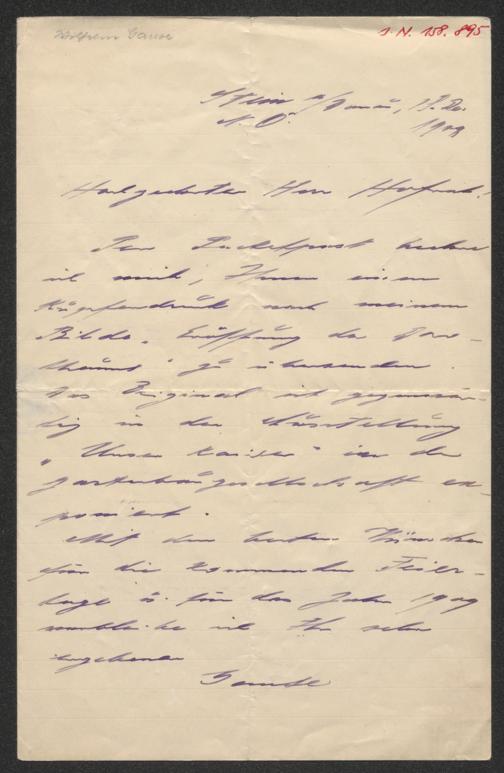 I. N. 158.895
Stein a/Donau, 19. Dec.
N. Ö. 1909
Hochgeehrter Herr Hofrath!
Per Packetpost beehre
ich mich, Ihnen einen
Kupferdruck nach meinem
Bilde „Eröffnung des
" zu übersenden.
Das Original ist gegenwär-
tig in der Ausstellung
„Unser Kaiser" in der
Gartenbaugesellschaft ex-
poniert.
Mit den besten Wünschen
für die kommenden Feier-
tage u. für das Jahr 1909
verbleibe ich Ihr sehr
ergebener
Gause